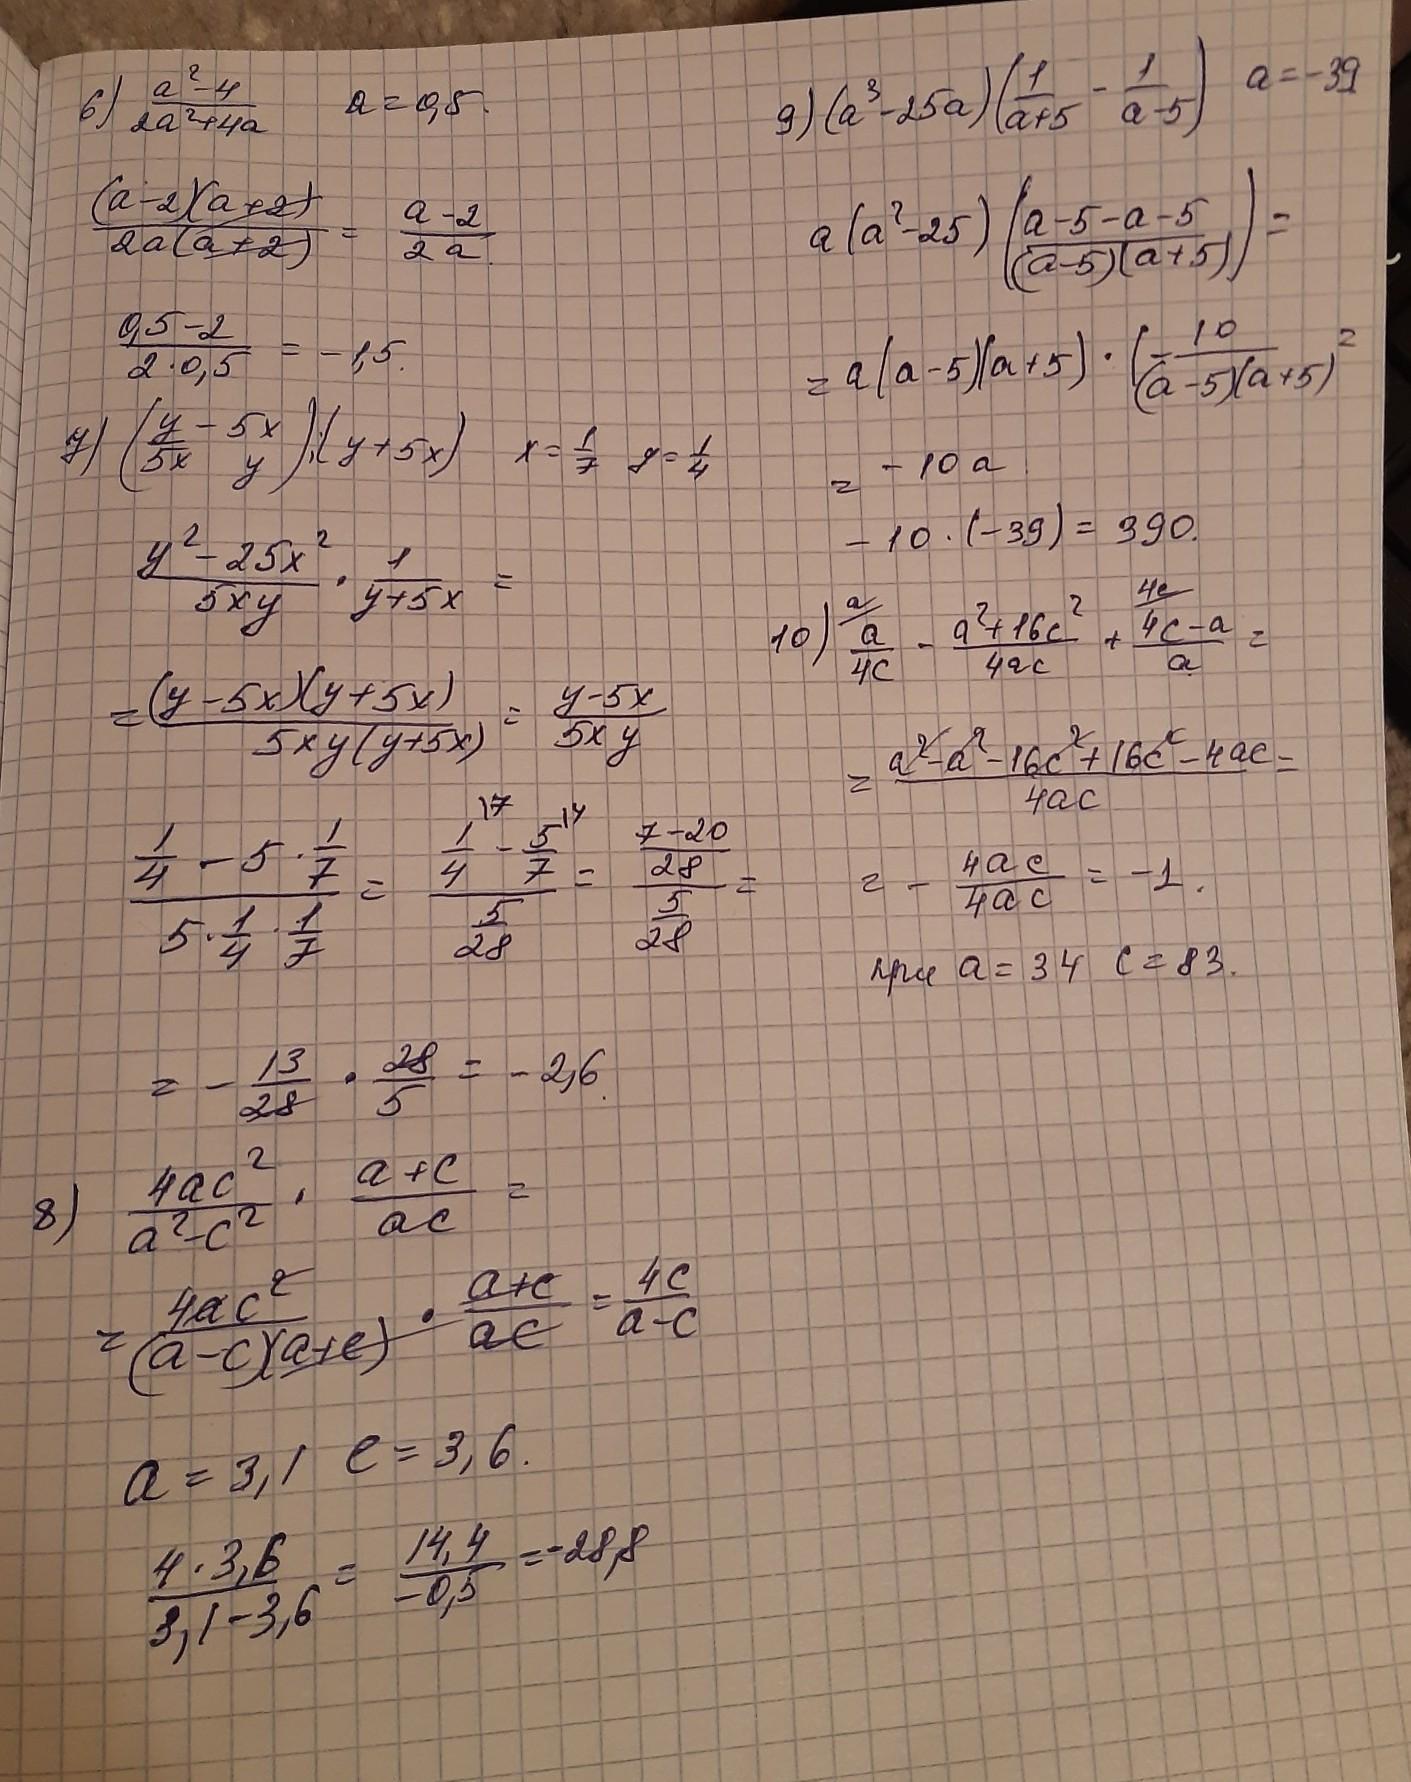 6) (a²-4)/(2a²+4a) a = 0,5.
((a-2)(a+2))/(2a(a+2)) = (a-2)/(2a).
(0,5-2)/(2·0,5) = -1,5.
7) (y/(5x) - 5x/y):(y+5x) x = 1/7 y = 1/4
(y²-25x²)/(5xy) · 1/(y+5x) =
= ((y-5x)(y+5x))/(5xy(y+5x)) = (y-5x)/(5xy)
(1/4 - 5·1/7)/(5·1/4·1/7) = (1/4 \7 - 5/7 \4)/(5/28) = ((7-20)/28)/(5/28) =
= - 13/28 · 28/5 = -2,6.
8) (4ac²)/(a²-c²) · (a+c)/(ac) =
= (4ac²)/((a-c)(a+c)) · (a+c)/(ac) = (4c)/(a-c)
a = 3,1 c = 3,6.
(4·3,6)/(3,1-3,6) = (14,4)/(-0,5) = -28,8
9) (a³-25a)(1/(a+5) - 1/(a-5)) a = -39
a(a²-25)((a-5-a-5)/((a-5)(a+5))) =
= a(a-5)(a+5)·(-10/((a-5)(a+5)) =
= -10a
-10·(-39) = 390.
10) a/ a/(4c) - (a²+16c²)/(4ac) + 4c/ (4c-a)/a =
= (a²-a²-16c²+16c²-4ac)/(4ac) =
= - (4ac)/(4ac) = -1.
при a = 34 c = 83.